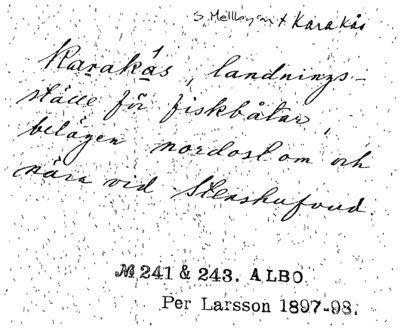 S. Mellby sn + Karakås
Karakås, landnings-
ställe för fiskbåtar,
belägen nordost om och
nära vid Stenshufvud.
№ 241 & 243. ALBO
Per Larsson 1897-98.